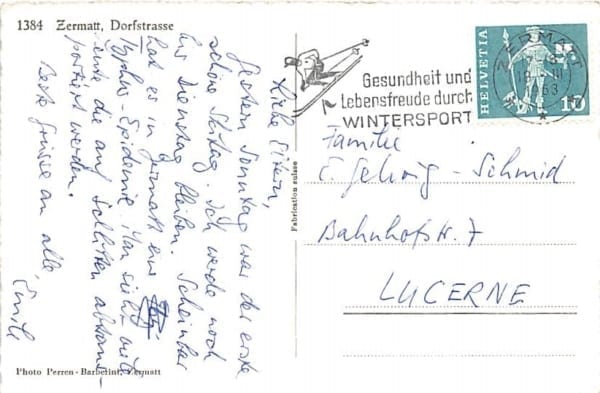 1384 Zermatt, Dorfstrasse
Liebe Eltern,
gestern Sonntag war der erste
schöne Skitag. Ich werde noch
bis Dienstag bleiben. Scheinbar
hat es in Zermatt eine
Typhus-Epidemie. Man sieht viele
Leute die auf Schlitten abtrans-
portiert werden.
Beste Grüsse an alle,
Emil
Photo Perren-Barberini, Zermatt
Fabrication suisse
Gesundheit und
Lebensfreude durch
WINTERSPORT
ZERMATT
III
HELVETIA
10
Familie
E. Gehrig-Schmid
Bahnhofstr. 7
LUCERNE